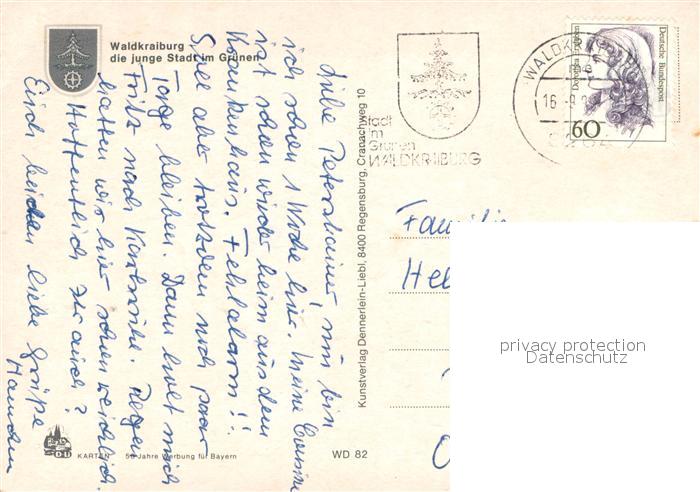 Waldkraiburg
die junge Stadt im Grünen
Liebe Petershainer, nun bin
ich schon 1 Woche hier. Meine Cousine
ist schon wieder heim aus dem
Krankenhaus. Fehlalarm!!
Soll aber trotzdem noch paar
Tage bleiben. Dann holt mich
Fritz nach Karlsruhe. Regen
hatten wir hier schon reichlich.
Hoffentlich Ihr auch?
Euch beiden liebe Grüße
KARTEN 50 Jahre Werbung für Bayern
WD 82
Kunstverlag Dennerlein-Liebl, 8400 Regensburg, Cranachweg 10
Stadt
im
Grünen
WALDKRAIBURG
WALDK
16.-9.
Deutsche Bundespost
60
Familie
privacy protection
Datenschutz